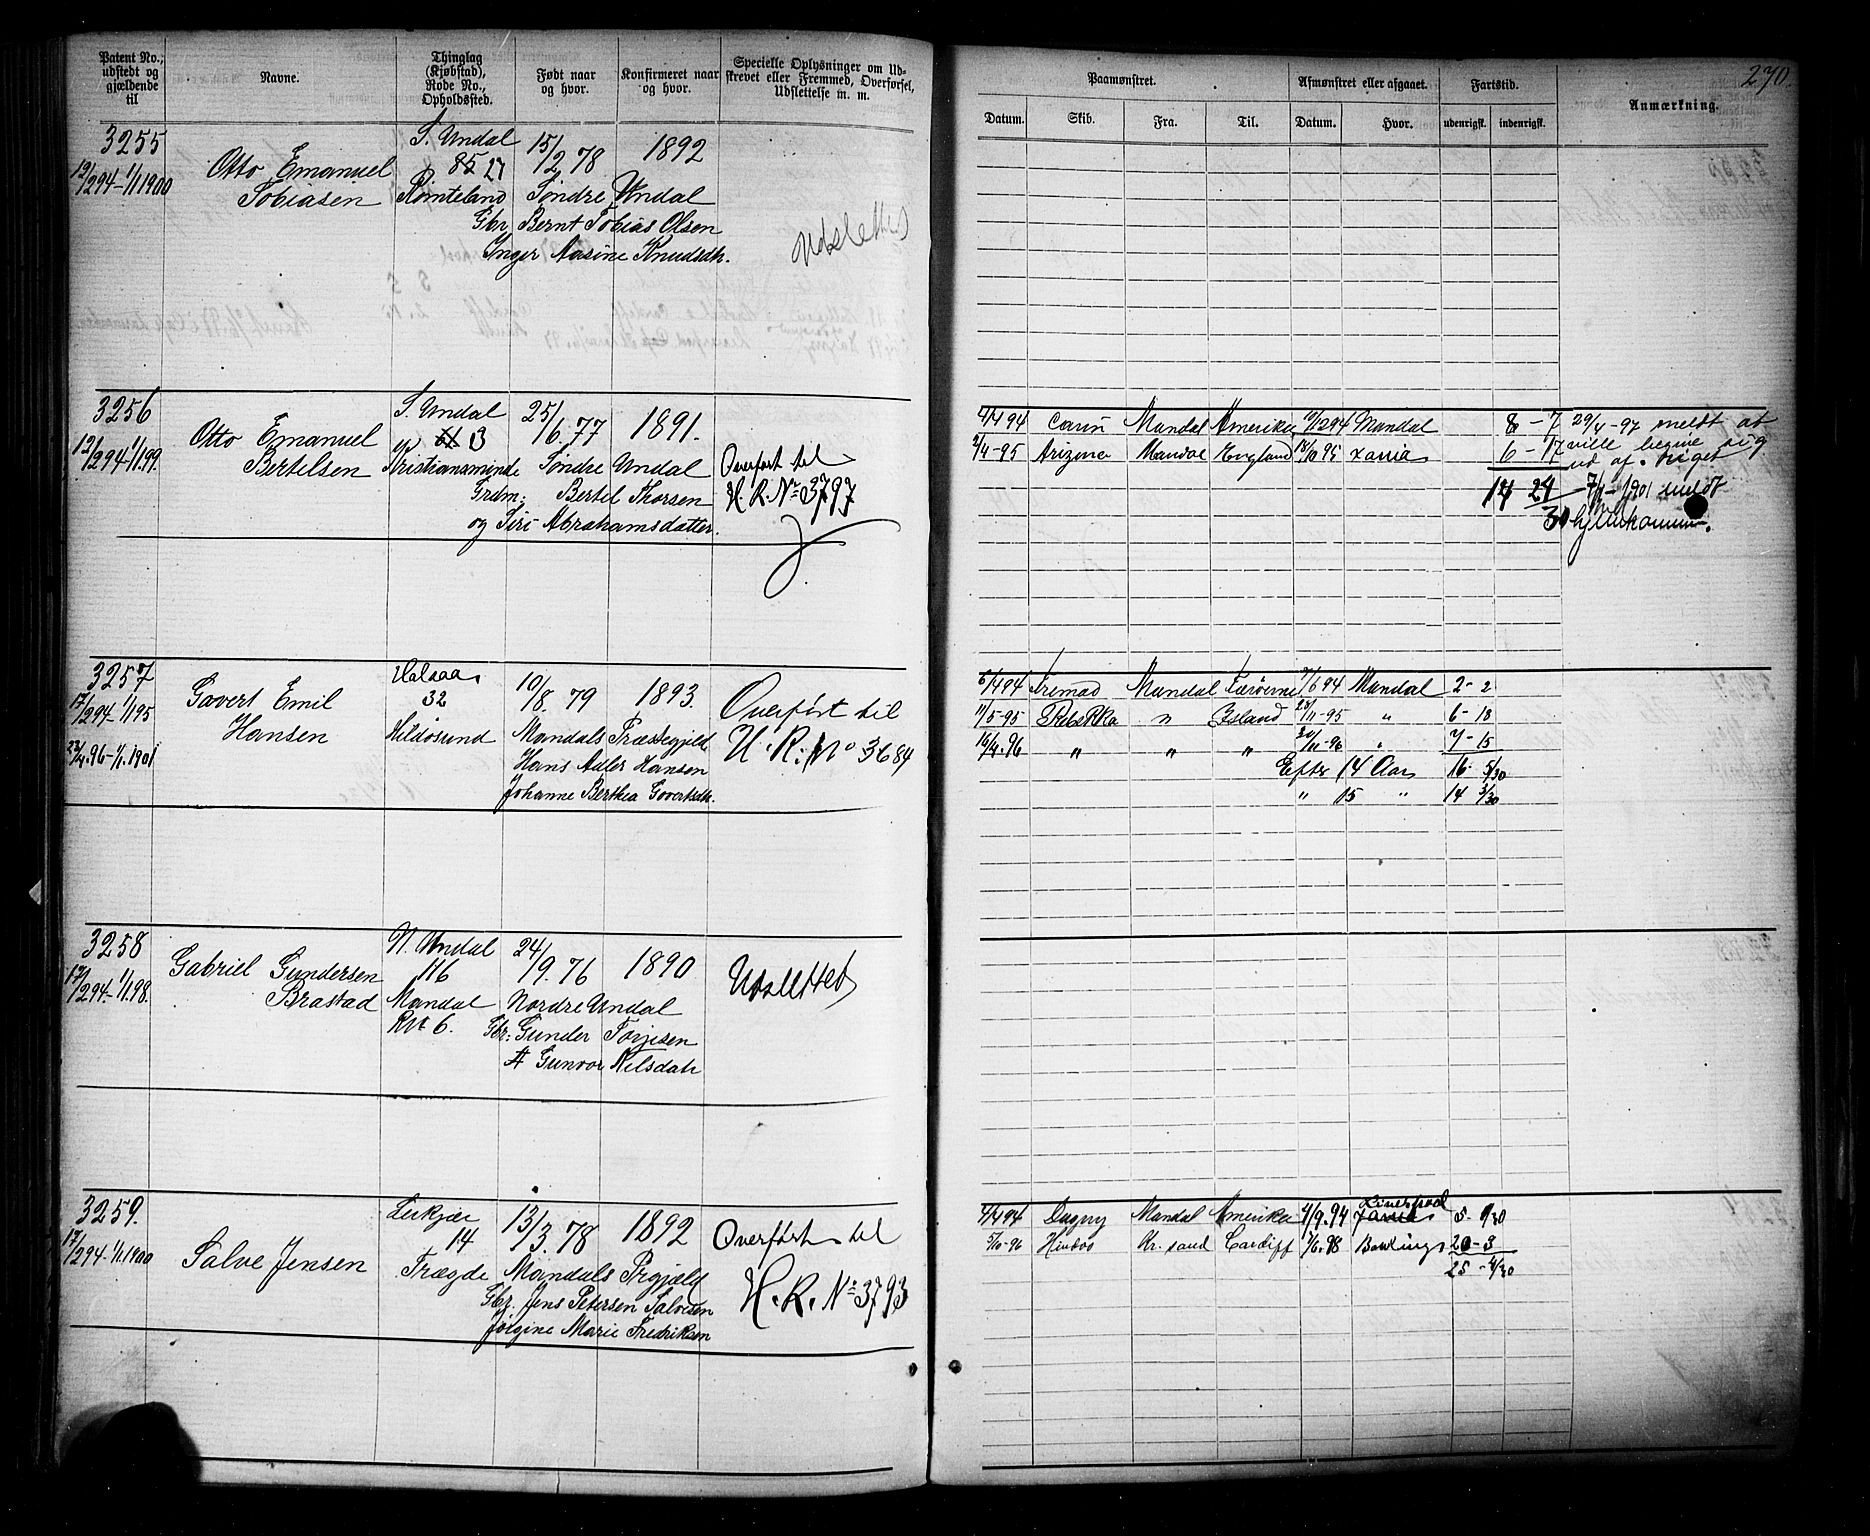 270.
Patent No., udstedt og gjældende til
Navne.
Thinglag (Kjøbstad), Rode No., Opholdssted.
Født naar og hvor.
Konfirmeret naar og hvor.
Specielle Oplysninger om Udskrevet eller Fremmed, Overførsel, Udslettelse m. m.
Paamønstret.
Afmønstret eller afgaaet.
Fartstid.
Anmærkning.
Datum.
Skib.
Fra.
Til.
Datum.
Hvor.
udenrigsk.
indenrigsk.
3255
12/12 94 – 1/1 1900
Otto Emanuel
Tobiasen
S. Undal
85 27
Rømteland
15/2 78
1892
Søndre Undal
Gbr. Bernt Tobias Olsen
Inger Aasine Knudsdtr.
Udslettes
3256
12/12 94 1/1 99.
Otto Emanuel
Bertelsen
S. Undal
61 3
Kristiansminde
25/6. 77
1891.
Søndre Undal
Grdm: Bertel Thorsen
og Siri Abrahamsdatter.
Overført til
H. R. No 3797
4/4 94 Carin Mandal Amerika 19/12 94 Mandal 8 – 7
2/4 – 95 Arizona Mandal England 18/10 95 Xania 6 – 17
14 24
30
29/4 – 97 meldt at
ville begive sig
ud af Riget
7/1 – 1901 meldt
hjemkommen.
3257
17/12 94 – 1/1 95
23/4. 96 – 1/1. 1901
Govert Emil
Hansen
Halsaa
32
Hildøsund
10/8. 79
1893.
Mandals Præstegjeld
Hans Adler Hansen
Johanne Berthea Govertsdtr.
Overført til
H. R. No 3684
6/4 94 Fremad Mandal Færøerne 7/6 94 Mandal 2 – 2
11/5 – 95 Rebekka " Island 28/11 – 95 " 6 – 18
16/4. 96 " " " 30/11 – 96 " 7 – 15
Efter 14 Aar 16 5/30
" 15 " 14 3/30
3258
17/12 94 – 1/1 98.
Gabriel Gundersen
Brastad
N. Undal
116
Mandal
R No 6.
24/9. 76
1890
Nordre Undal
Gbr: Gunder Torjesen
Gunvor Nilsdatr
Udslettet
3259.
17/12 94 – 1/1. 1900
Salve Jensen
Lerkjær
14
Trægde
13/3. 78
1892
Mandals Prgjæld
Gbr. Jens Petersen Salvesen
Jørgine Marie Fredriksen
Overført til
H. R. No 3793
4/4 94 Dagny Mandal Amerika 4/9. 94 Liverpool 5 – 1/30
5/10 – 96 Hindos Kr. sand Cardiff 1/6. 98 Bowlings 20 – 3
25 – 4/30